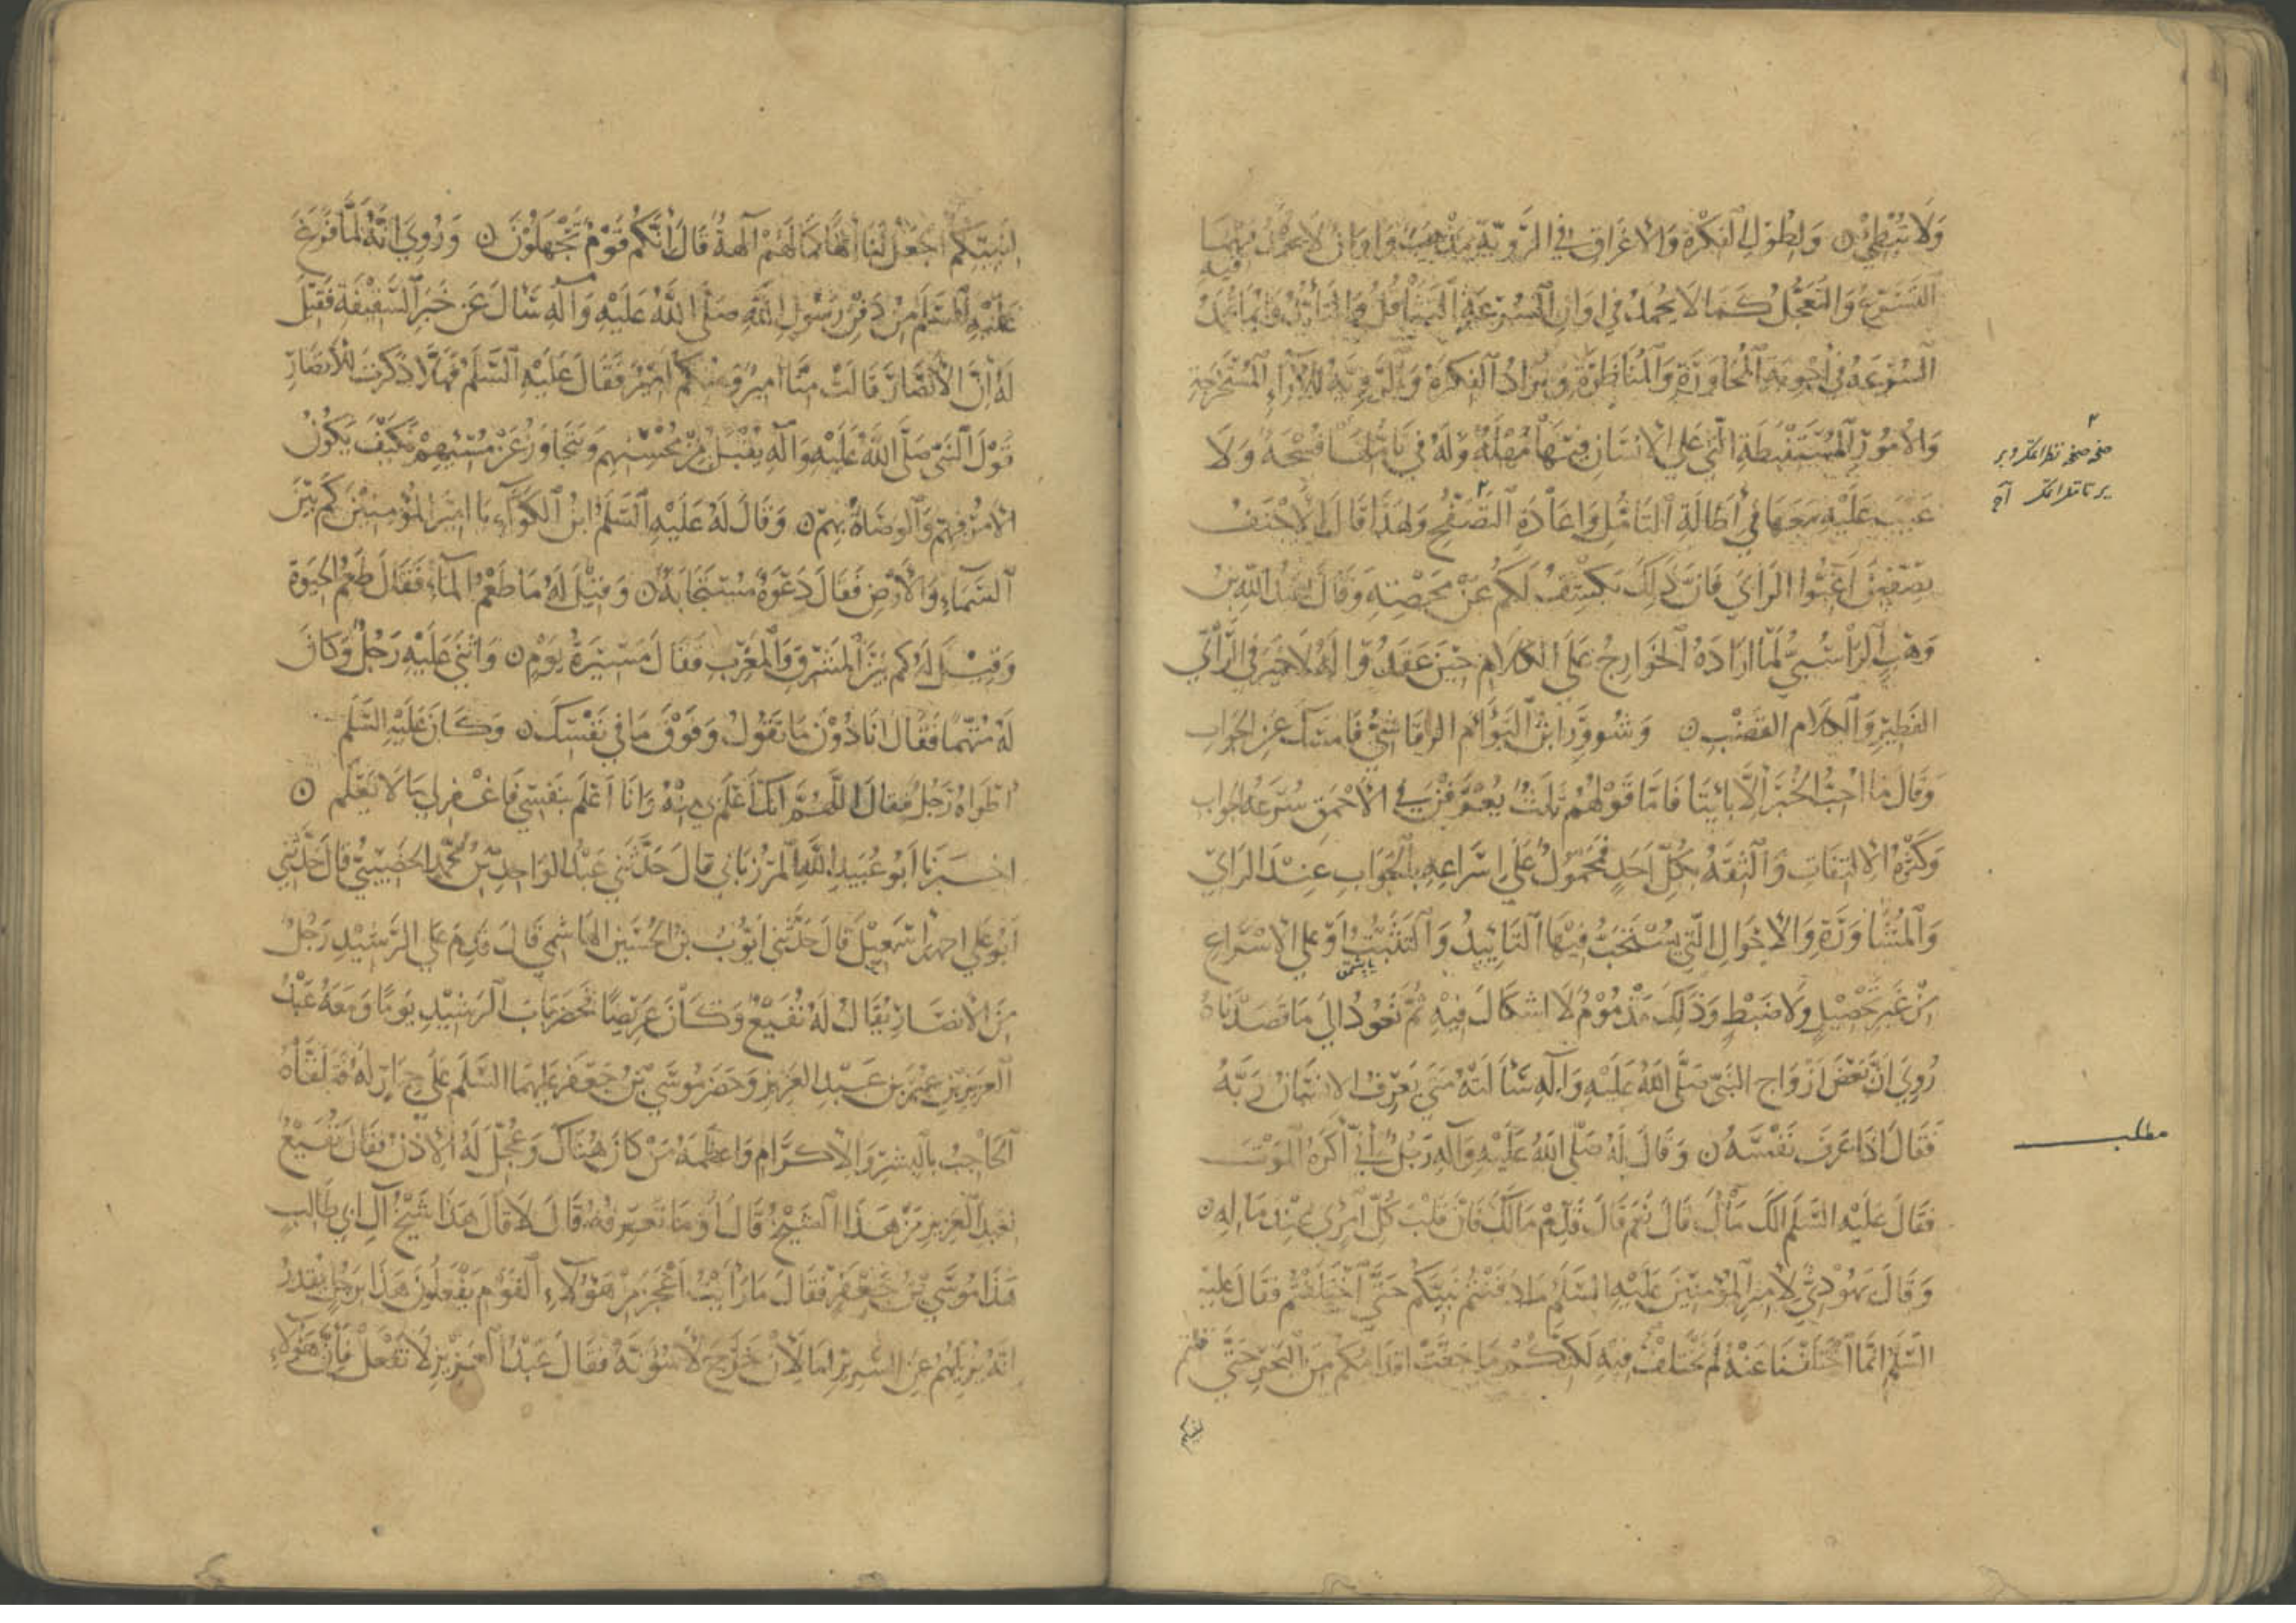 وَلَا تُبْطِئْ ۝ وَلِطُولِ الفِكْرَةِ وَالْاِغْرَاقِ فِي الرَّوِيَّةِ مَذْهَبٌ وَاَوَانٌ لَا يُحْمَدُ فِيهِمَا
التَّسَرُّعُ وَالتَّعَجُّلُ كَمَا لَا يُحْمَدُ فِي اَوَانِ السُّرْعَةِ التَّثَاقُلُ وَالتَّأَيُّدُ وَاِنَّمَا تُحْمَدُ فيه
السُّرْعَةُ فِي اَجْوِبَةِ الْمُحَاوَرَةِ وَالْمُنَاظَرَةِ وَيُرَادُ الفِكْرَةُ وَالرَّوِيَّةُ لِلْآرَاءِ الْمُسْتَخْرَجَةِ
وَالْاُمُورِ الْمُسْتَنْبَطَةِ الَّتِي عَلَى الْاِنْسَانِ فِيهَا مُهْلَةٌ وَلَهُ فِي تَأَمُّلِهَا فُسْحَةٌ وَلَا
عَيْبَ عَلَيْهِ مَعَهَا فِي اِطَالَةِ التَّأَمُّلِ وَاِعَادَةِ التَّصَفُّحِ وَلِهَذَا قَالَ الْاَحْنَفُ
بِصِفِّينَ اَغِبُّوا الرَّأيَ فَاِنَّ ذَلِكَ يَكْشِفُ لَكُمْ عَنْ مَحْضِهِ وَقَالَ عَبْدُ اللّٰهِ بْنُ
وَهْبٍ الرَّاسِبِيُّ لَمَّا اَرَادَهُ الْخَوَارِجُ عَلَى الكَلَامِ حِينَ عَقَدُوا لَهُ لَا خَيْرَ فِي الرَّأيِ
الفَطِيرِ وَالكَلَامِ القَضْبِ ۝ وَشُووِرَ ابْنُ التَّوْأَمِ الرَّقَاشِيُّ فَاَمْسَكَ عَنِ الجَوَابِ
وَقَالَ مَا اُحِبُّ الخُبْزَ اِلَّا بَائِتًا فَاَمَّا قَوْلُهُمْ ثَلَثٌ يُعْرَفْنَ فِي الْاَحْمَقِ سُرْعَةُ الجَوَابِ
وَكَثْرَةُ الْاِلْتِفَاتِ وَالثِّقَةُ بِكُلِّ اَحَدٍ فَمَحْمُولٌ عَلَى اِسْرَاعِهِ بِالْجَوَابِ عِنْدَ الرَّايِ
وَالْمُشَاوَرَةِ وَالْاَحْوَالِ الَّتِي يُسْتَحَبُّ فِيهَا التَّأيِيدُ وَالتَّثَبُّتُ اَوْ عَلَى الْاِسْرَاعِ
مِنْ غَيْرِ تَحْصِيلٍ وَلَا ضَبْطٍ وَذَلِكَ مَذْمُومٌ لَا اِشْكَالَ فِيهِ ثُمَّ نَعُودُ اِلَى مَا قَصَدْنَاهُ
رُوِيَ اَنَّ بَعْضَ اَزْوَاجِ النَّبِيِّ صَلَّى اللهُ عَلَيْهِ وَآلِهِ سَأَلَتْهُ مَتَى يَعْرِفُ الْاِنْسَانُ رَبَّهُ
فَقَالَ اِذَا عَرَفَ نَفْسَهُ ۝ وَقَالَ لَهُ صَلَّى اللهُ عَلَيْهِ وَآلِهِ رَجُلٌ اِنِّي اَكْرَهُ الْمَوْتَ
فَقَالَ عَلَيْهِ السَّلَمُ اَلَكَ مَالٌ قَالَ نَعَمْ قَالَ قَدِّمْ مَالَكَ فَاِنَّ قَلْبَ كُلِّ امْرِئٍ عِنْدَ مَالِهِ ۝
وَقَالَ يَهُودِيٌّ لِاَمِيرِ الْمُؤْمِنِينَ عَلَيْهِ السَّلَمُ مَا دَفَنْتُمْ نَبِيَّكُمْ حَتَّى اخْتَلَفْتُمْ فَقَالَ عَلَيْهِ
السَّلَمُ اِنَّمَا اخْتَلَفْنَا عَنْهُ لَمْ نَخْتَلِفْ فِيهِ لَكِنَّكُمْ مَا جَفَّتْ اَقْدَامُكُمْ مِنَ الْبَحْرِ حَتَّى قُلْتُمْ
مطلب
لِنَبِيِّكُمْ اجْعَلْ لَنَا اِلٰهًا كَمَا لَهُمْ آلِهَةٌ قَالَ اِنَّكُمْ قَوْمٌ تَجْهَلُوْنَ ۝ وَرُوِيَ اَنَّهُ لَمَّا فَرَغَ
عَلَيْهِ السَّلَمُ مِنْ دَفْنِ رَسُولِ اللّٰهِ صَلَّى اللّٰهُ عَلَيْهِ وَآلِهِ سَأَلَ عَنْ خَبَرِ السَّقِيفَةِ فَقِيلَ
لَهُ اِنَّ الْاَنْصَارَ قَالَتْ مِنَّا اَمِيرٌ وَمِنْكُمْ اَمِيرٌ فَقَالَ عَلَيْهِ السَّلَمُ فَهَلَّا ذَكَرْتَ لِلْاَنْصَارِ
قَوْلَ النَّبِيِّ صَلَّى اللهُ عَلَيْهِ وَآلِهِ يُقْبَلُ مِنْ مُحْسِنِهِمْ وَيُتَجَاوَزُ عَنْ مُسِيئِهِمْ فَكَيْفَ يَكُونُ
الْاَمْرُ فِيهِمْ وَالوَصَاةُ بِهِمْ ۝ وَقَالَ لَهُ عَلَيْهِ السَّلَمُ ابْنُ الكَوَّاءِ يَا اَمِيرَ الْمُؤْمِنِينَ كَمْ بَيْنَ
السَّمَاءِ وَالْاَرْضِ فَقَالَ دَعْوَةٌ مُسْتَجَابَةٌ ۝ وَقِيلَ لَهُ مَا طَعْمُ المَاءِ فَقَالَ طَعْمُ الحَيٰوةِ
وَقِيلَ لَهُ كَمْ بَيْنَ الْمَشْرِقِ وَالْمَغْرِبِ فَقَالَ مَسِيرَةُ يَوْمٍ ۝ وَاَثْنَى عَلَيْهِ رَجُلٌ وَكَانَ
لَهُ مُتَّهِمًا فَقَالَ اَنَا دُوْنَ مَا تَقُولُ وَفَوْقَ مَا فِي نَفْسِكَ ۝ وَكَانَ عَلَيْهِ السَّلَمُ
اِذَا اَطْرَاهُ رَجُلٌ فَقَالَ اَللّٰهُمَّ اِنَّكَ اَعْلَمُ بِي مِنْهُ وَاَنَا اَعْلَمُ بِنَفْسِي فَاغْفِرْ لِي مَا لَا يَعْلَمُ ۝
اَخْبَرَنَا اَبُو عُبَيْدِ اللّٰهِ الْمَرْزُبَانِي قَالَ حَدَّثَنِي عَبْدُ الوَاحِدِ بْنُ مُحَمَّدٍ الخَصِيبِيُّ قَالَ حَدَّثَنِي
اَبُو عَلِي اَحْمَدُ بْنُ اِسْمٰعِيلَ قَالَ حَدَّثَنِي اَيُّوبُ بْنُ الْحُسَيْنِ الهَاشِمِي قَالَ قَدِمَ عَلَى الرَّشِيْدِ رَجُلٌ
مِنَ الْاَنْصَارِ يُقَالُ لَهُ نُفَيْعٌ وَكَانَ عِرِّيضًا فَحَضَرَ بَابَ الرَّشِيْدِ يَوْمًا وَمَعَهُ عَبْدُ
العَزِيزِ بْنِ عُمَرَ بْنِ عَبْدِ العَزِيزِ وَحَضَرَ مُوسَى بْنُ جَعْفَرٍ عَلَيْهِمَا السَّلَمُ عَلَى حِمَارٍ لَهُ فَتَلَقَّاهُ
الحَاجِبُ بِالْبِشْرِ وَالْاِكْرَامِ وَاَعْظَمَهُ مَنْ كَانَ هُنَاكَ وَعُجِّلَ لَهُ الْاِذْنُ فَقَالَ نُفَيْعٌ
لِعَبْدِ الْعَزِيزِ مَنْ هَذَا الشَّيْخُ قَالَ اَوَمَا تَعْرِفُهُ قَالَ لَا قَالَ هَذَا شَيْخُ آلِ اَبِي طَالِبٍ
هَذَا مُوسَى بْنُ جَعْفَرٍ فَقَالَ مَا رَأَيْتُ اَعْجَزَ مِنْ هَؤُلَاءِ القَوْمِ يَفْعَلُونَ هَذَا بِرَجُلٍ يَقْدِرُ
اَنْ يُزِيلَهُمْ عَنِ السَّرِيرِ اَمَا لَاِنْ خَرَجَ لَاَسُوءَنَّهُ فَقَالَ عَبْدُ الْعَزِيزِ لَا تَفْعَلْ فَاِنَّ هَؤُلَاءِ